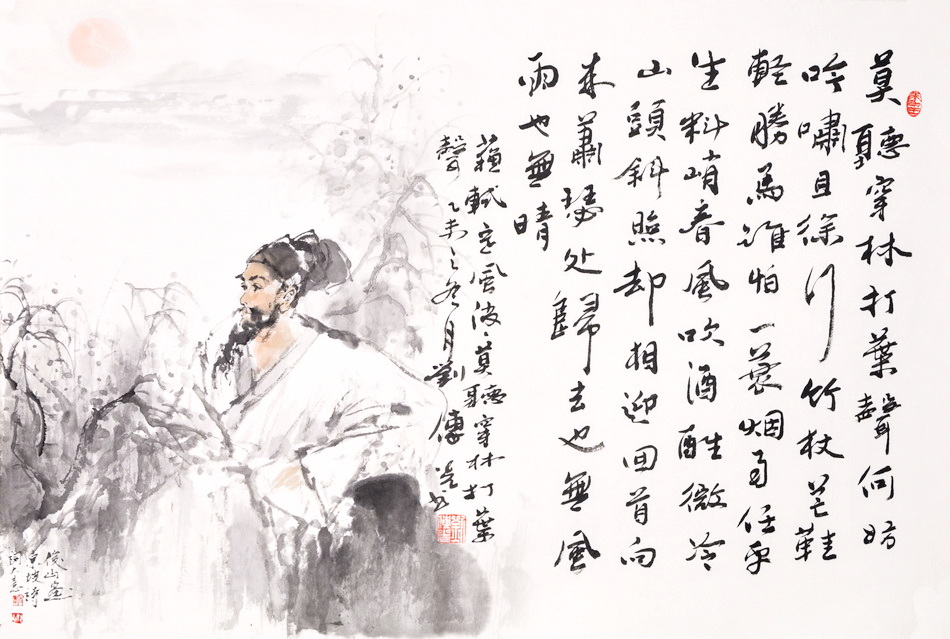 莫聽穿林打葉聲何妨
吟嘯且徐行竹杖芒鞋
輕勝馬誰怕一蓑烟雨任平
生料峭春風吹酒醒微冷
山頭斜照却相迎回首向
来蕭瑟处歸去也無風
雨也無晴
蘇軾定風波、莫聽穿林打葉
聲乙未之冬月劉傅书
俊山畫
東坡詩
词之意